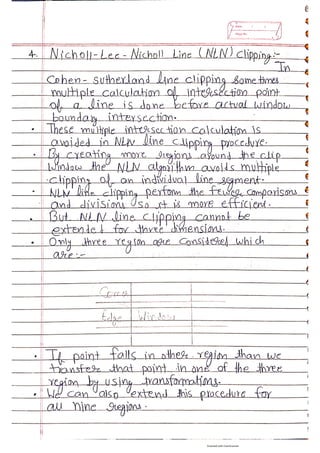 4. Nicholl-Lee-Nicholl Line (NLN) clipping:-
In
Cohen-Sutherland line clipping sometimes
multiple calculation of intersection point
of a line is done before actual window
boundary intersection.
• These multiple intersection calculation is
avoided in NLN line clipping procedure.
• By creating more regions around the clip
window the NLN algorithm avoids multiple
clipping of an individual line segment.
• NLN line clipping perform the fewer comparisons
and divisions so it is more efficient.
• But NLN line clipping cannot be
extended for three dimensions.
• Only three region are considered which
are:-
Edge Window
• If point falls in other region than we
transfer that point in one of the three
region by using transformations.
• We can also extend this procedure for
all nine regions.